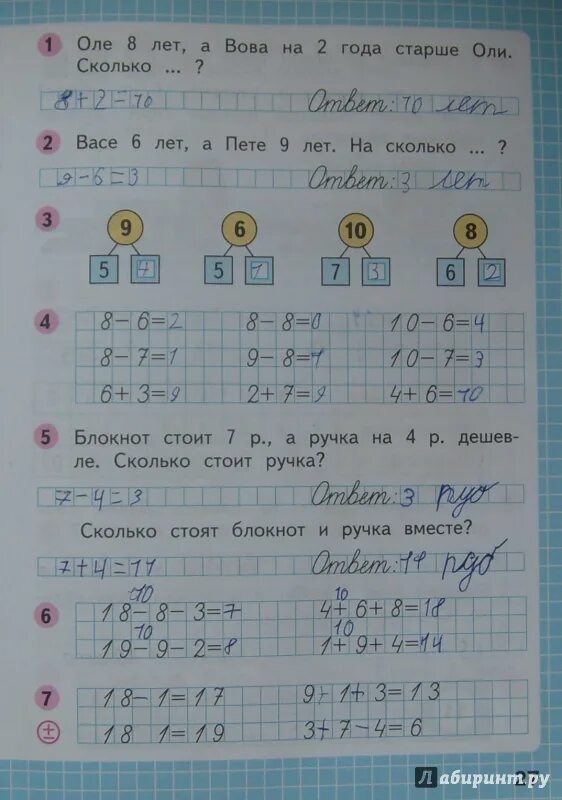 1 Оле 8 лет, а Вова на 2 года старше Оли.
Сколько ... ?
8+2=10 Ответ: 10 лет
2 Васе 6 лет, а Пете 9 лет. На сколько ... ?
9-6=3 Ответ: 3 лет
3 9 6 10 8
5 4 5 1 7 3 6 2
4 8-6=2 8-8=0 10-6=4
8-7=1 9-8=1 10-7=3
6+3=9 2+7=9 4+6=10
5 Блокнот стоит 7 р., а ручка на 4 р. дешев-
ле. Сколько стоит ручка?
7-4=3 Ответ: 3 руб
Сколько стоят блокнот и ручка вместе?
7+4=11 Ответ: 11 руб
10 10
6 18-8-3=7 4+6+8=18
10 10
19-9-2=8 1+9+4=14
7 18-1=17 9+1+3=13
± 18 1=19 3+7-4=6
Лабиринт.ру